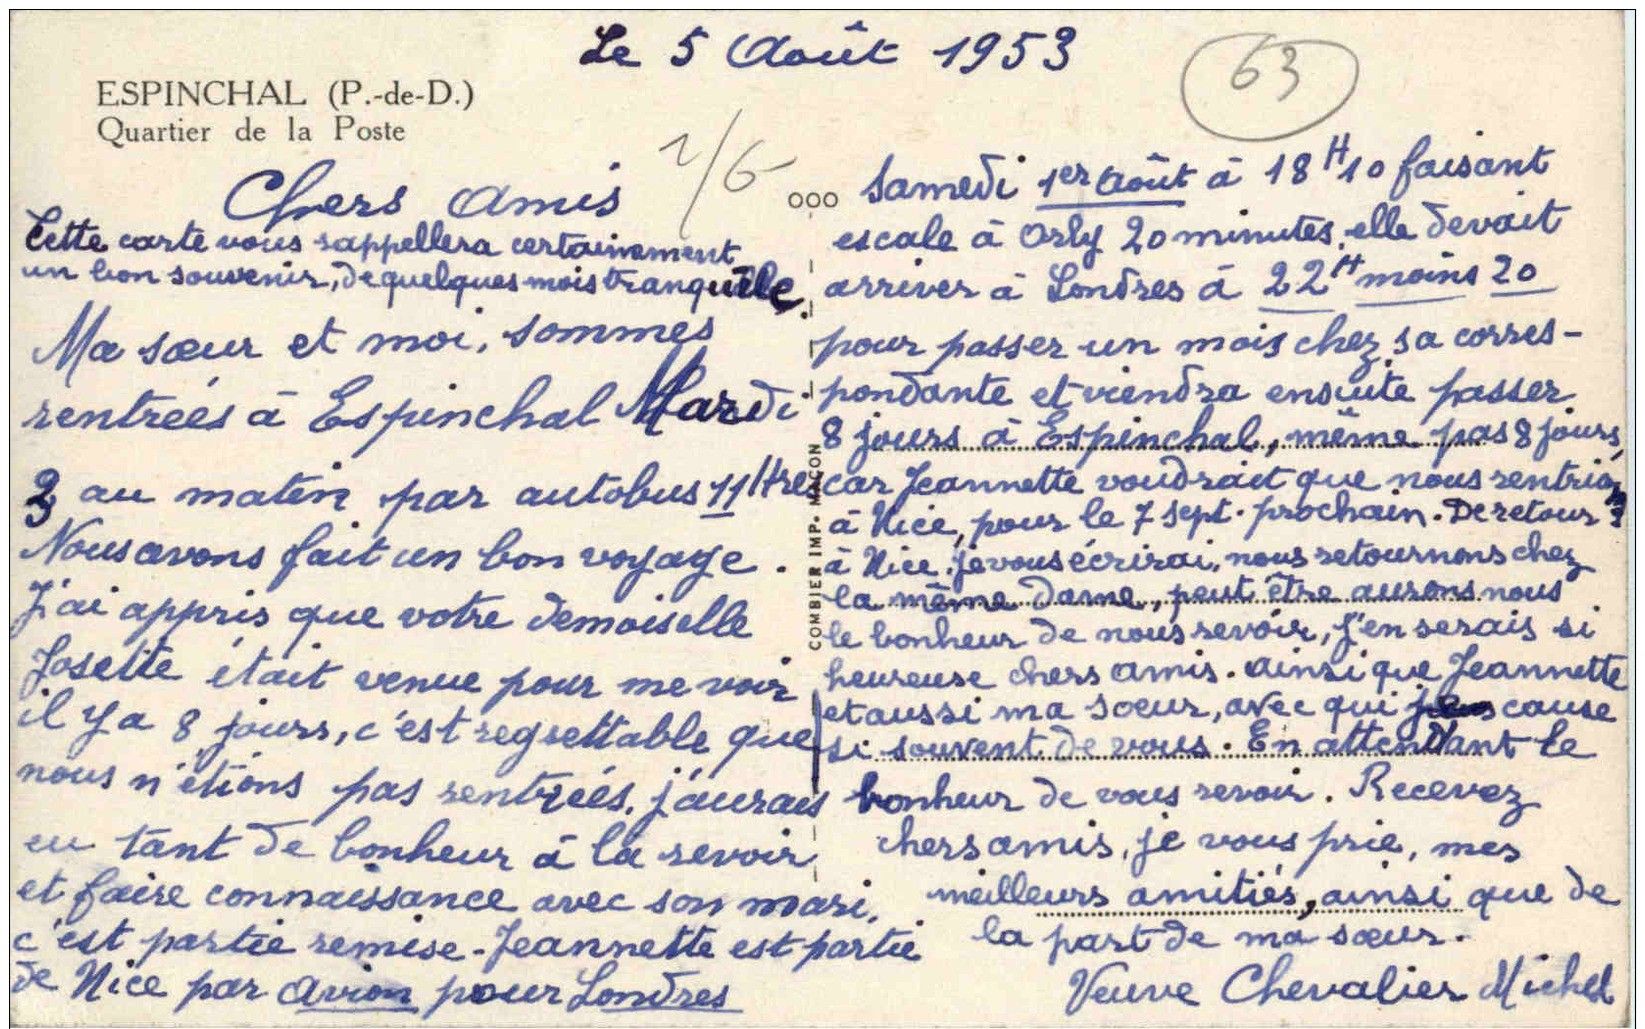 Le 5 Août 1953
63
ESPINCHAL (P.-de-D.)
Quartier de la Poste
Chers amis
Cette carte vous rappellera certainement
un bon souvenir, de quelques mois tranquille
Ma sœur et moi, sommes
rentrées à Espinchal Mardi
3 au matin par autobus 11 Hres
Nous avons fait un bon voyage.
J'ai appris que votre demoiselle
Josette était venue pour me voir
il y a 8 jours, c'est regrettable que
nous n'étions pas rentrées, j'aurais
eu tant de bonheur à la revoir
et faire connaissance avec son mari,
c'est partie remise - Jeannette est partie
de Nice par avion pour Londres
ooo
Samedi 1er août à 18 H 10 faisant
escale à Orly 20 minutes, elle devait
arriver à Londres à 22 H moins 20
pour passer un mois chez sa corres-
pondante et viendra ensuite passer
8 jours à Espinchal, même pas 8 jours,
car Jeannette voudrait que nous rentrions
à Nice, pour le 7 Sept. prochain. De retour
à Nice, je vous écrirai, nous retournons chez
la même dame, peut être aurons nous
le bonheur de nous revoir, j'en serais si
heureuse chers amis. ainsi que Jeannette
et aussi ma sœur, avec qui cause
si souvent de vous. En attendant le
bonheur de vous revoir. Recevez
chers amis, je vous prie, mes
meilleurs amitiés, ainsi que de
la part de ma sœur.
Veuve Chevalier Michel
COMBIER IMP. MACON